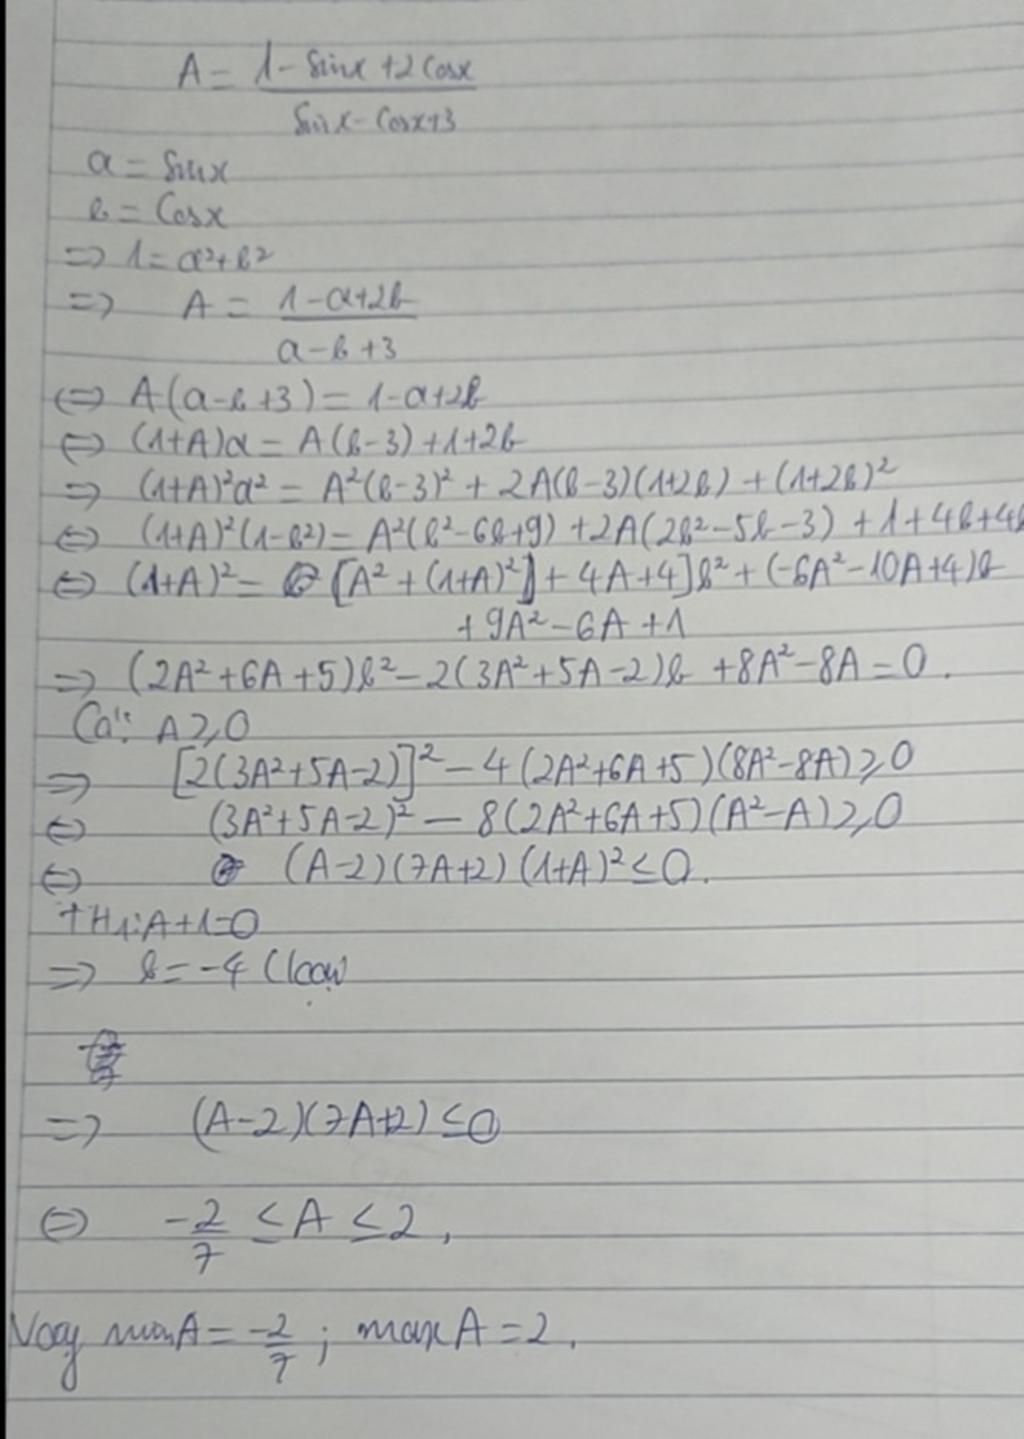 A = (1 - sinx + 2cosx) / (sinx - cosx + 3)
a = sinx
b = cosx
⇒ 1 = a² + b²
⇒ A = (1 - a + 2b) / (a - b + 3)
⇔ A(a - b + 3) = 1 - a + 2b
⇔ (1+A)a = A(b-3) + 1 + 2b
⇒ (1+A)²a² = A²(b-3)² + 2A(b-3)(1+2b) + (1+2b)²
⇔ (1+A)²(1-b²) = A²(b²-6b+9) + 2A(2b²-5b-3) + 1 + 4b + 4b
⇔ (1+A)² = [A² + (1+A)²] + 4A + 4]b² + (-6A² - 10A + 4)b
+ 9A² - 6A + 1
⇒ (2A² + 6A + 5)b² - 2(3A² + 5A - 2)b + 8A² - 8A = 0.
Có: Δ ≥ 0
⇒ [2(3A² + 5A - 2)]² - 4(2A² + 6A + 5)(8A² - 8A) ≥ 0
⇔ (3A² + 5A - 2)² - 8(2A² + 6A + 5)(A² - A) ≥ 0
⇔ (A-2)(7A+2)(1+A)² ≤ 0.
+ TH1: A + 1 = 0
⇒ b = -4 (loại)
⇒ (A-2)(7A+2) ≤ 0
⇔ -2/7 ≤ A ≤ 2,
Vậy minA = -2/7 ; maxA = 2.